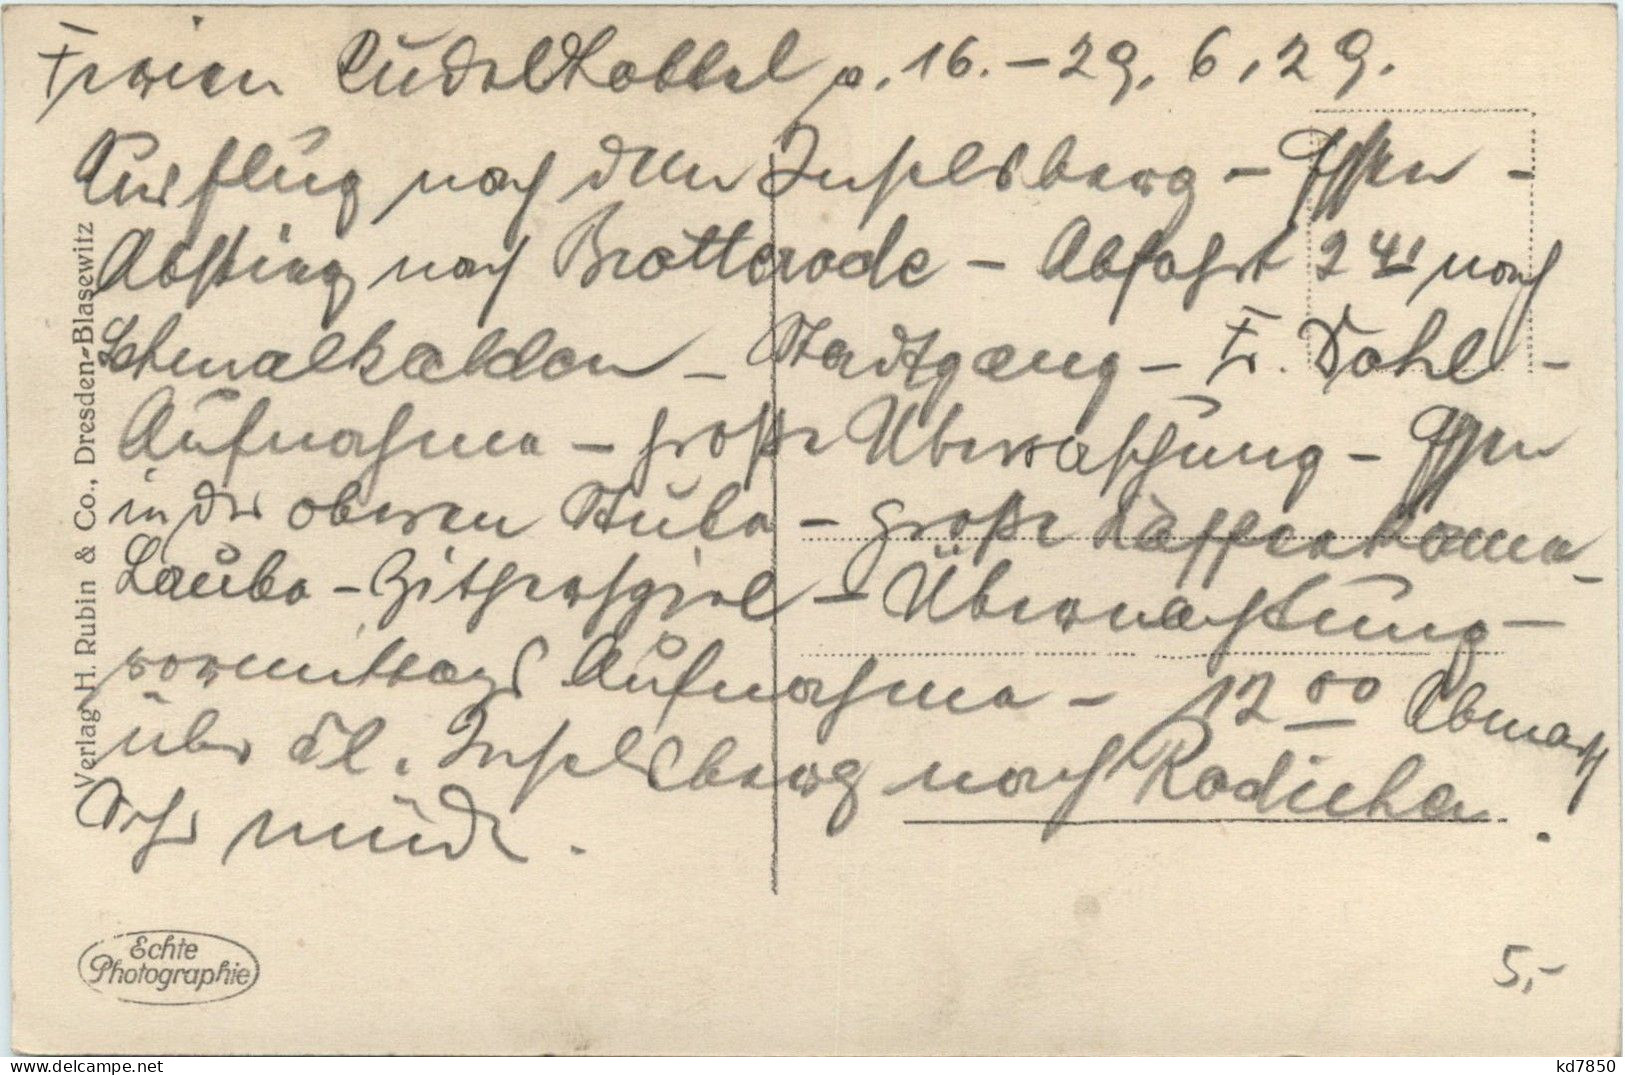 Ferien Ludolstobbel v. 16.-29. 6. 29.
Ausflug nach dem Inselsberg - Essen -
Abstieg nach Brotterode - Abfahrt 2 41 nach
Schmalkalden - Stadtgang - Fr. Dohl -
Aufnahme - große Überraschung - Essen
in der oberen Stube - große
Laube - Zitherspiel - Übernachtung -
vormittags Aufnahme - 12 00 Abmarsch
über kl. Inselsberg nach Rodichen.
Sehr müde.
Verlag H. Rubin & Co., Dresden-Blasewitz
Echte
Photographie
5,-
delcampe.net
kd7850